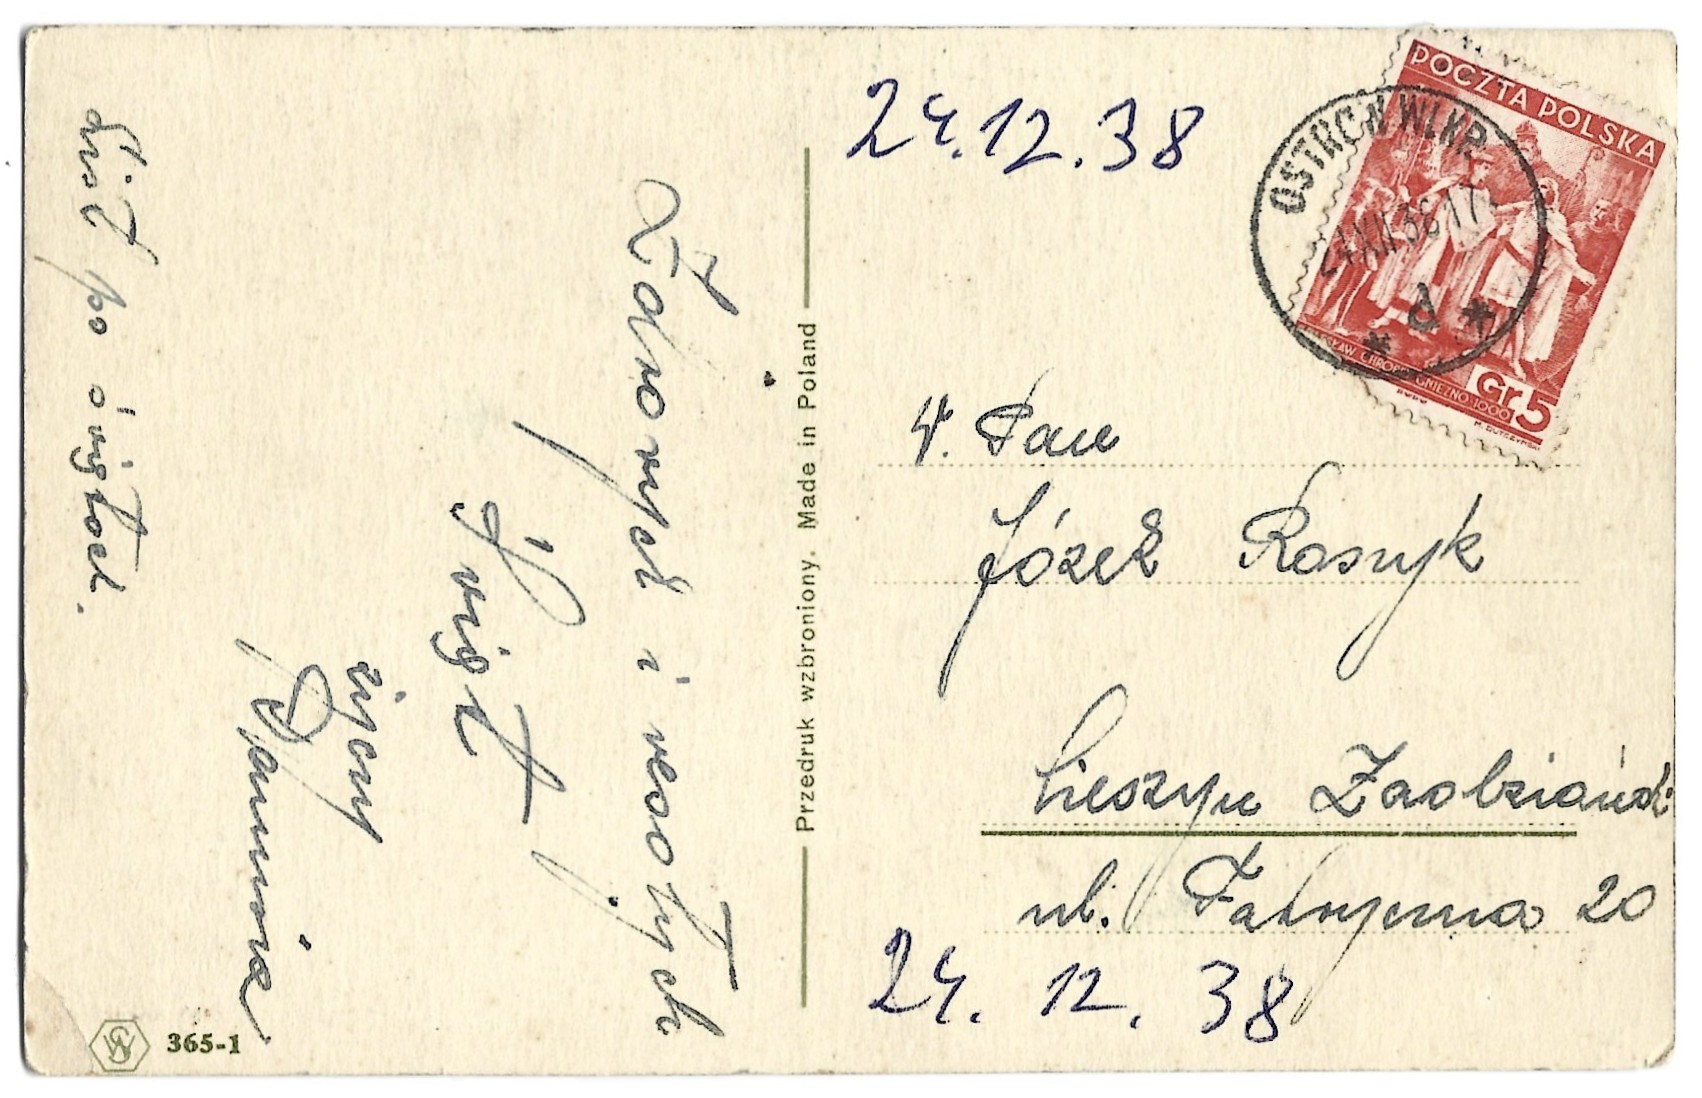 24.12.38
POCZTA POLSKA
OSTRÓW WLKP.
24 XII 38 17
d
GNIEZNO 1000
Gr. 5
W. Pan
Józef Kosyk
Cieszyn Zaolziański
ul. Fabryczna 20
24. 12. 38
Przedruk wzbroniony. Made in Poland
Zdrowych i wesołych
Świąt
życzy
List po świętach.
365-1